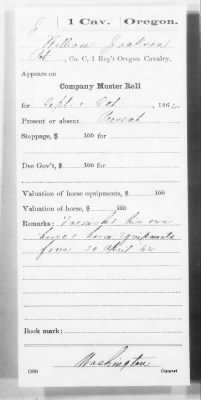 J | 1 Cav. | Oregon.
William Jackson
Pvt, Co. C, 1 Reg't Oregon Cavalry.
Appears on
Company Muster Roll
for Sept & Oct, 1864.
Present or absent Present
Stoppage, $ 100 for
Due Gov't, $ 100 for
Valuation of horse equipments, $ 100
Valuation of horse, $ 100
Remarks: Furnished his own
horse & horse equipments
from 30 April 64.
Book mark:
Washington
Copyist